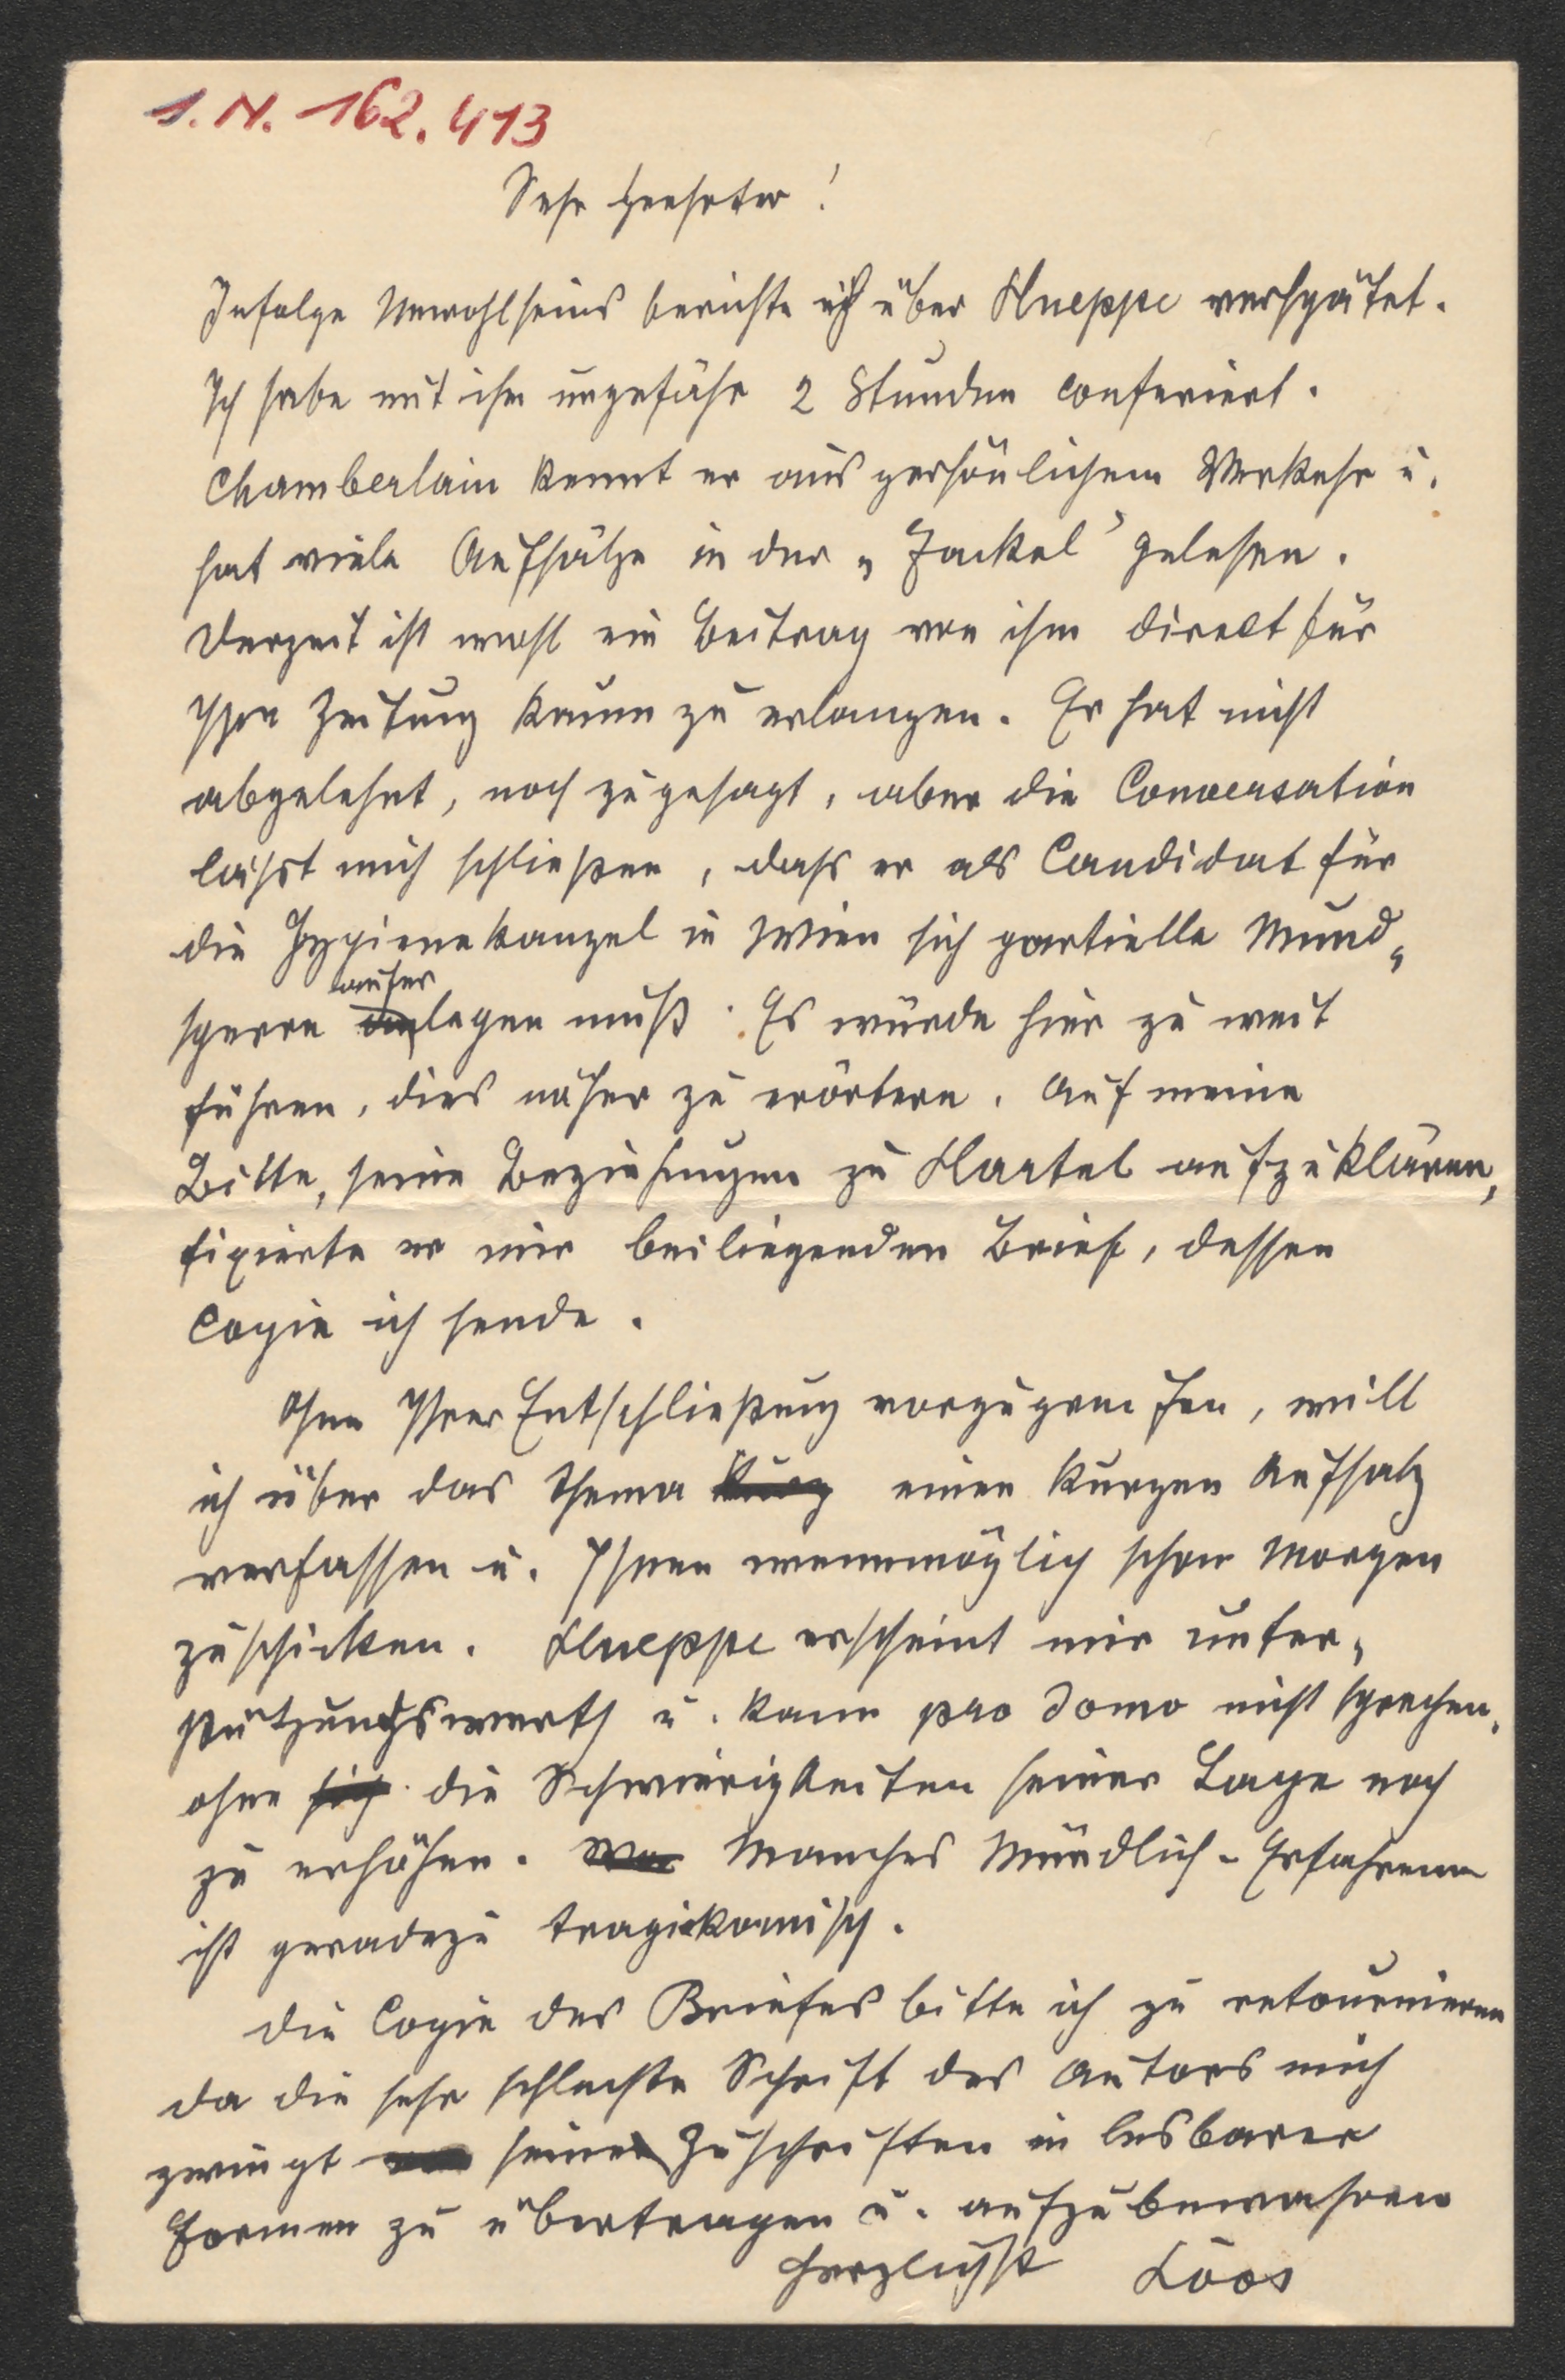 I.N. 162.413
Sehr geehrter!
Infolge Unwohlseins berichte ich über Hueppe verspätet.
Ich habe mit ihm ungefähr 2 Stunden conferiert.
Chamberlain kennt er aus persönlichem Verkehr u.
hat viele Aufsätze in der „Fackel" gelesen.
Derzeit ist wohl ein Beitrag von ihm direct für
Ihre Zeitung kaum zu erlangen. Er hat nicht
abgelehnt, noch zugesagt, aber die Conversation
lässt mich schließen, dass er als Candidat für
die Hygienekanzel in Wien sich partielle Mund„
aufer
sperre anlegen muß. Es würde hier zu weit
führen, dies näher zu erörtern. Auf meine
Bitte, seine Beziehungen zu Hartel aufzuklären,
fixierte er mir beiliegenden Brief, dessen
Copie ich sende.
Ohne Ihrer Entschließung vorzugreifen, will
ich über das Thema kurz einen kurzen Aufsatz
verfassen u. Ihnen wennmöglich schon morgen
zuschicken. Hueppe erscheint mir unter„
stützungswerth u. kann pro domo nicht sprechen,
ohne sich die Schwierigkeiten seiner Lage noch
zu erhöhen. Manches Mündlich-Erfahrene
ist geradezu tragikomisch.
Die Copie des Briefes bitte ich zu retournieren
da die sehr schlechte Schrift des Autors mich
zwingt seine Zuschriften in lesbarer
Formen zu übertragen u. aufzubewahren
Herzlichst Loos